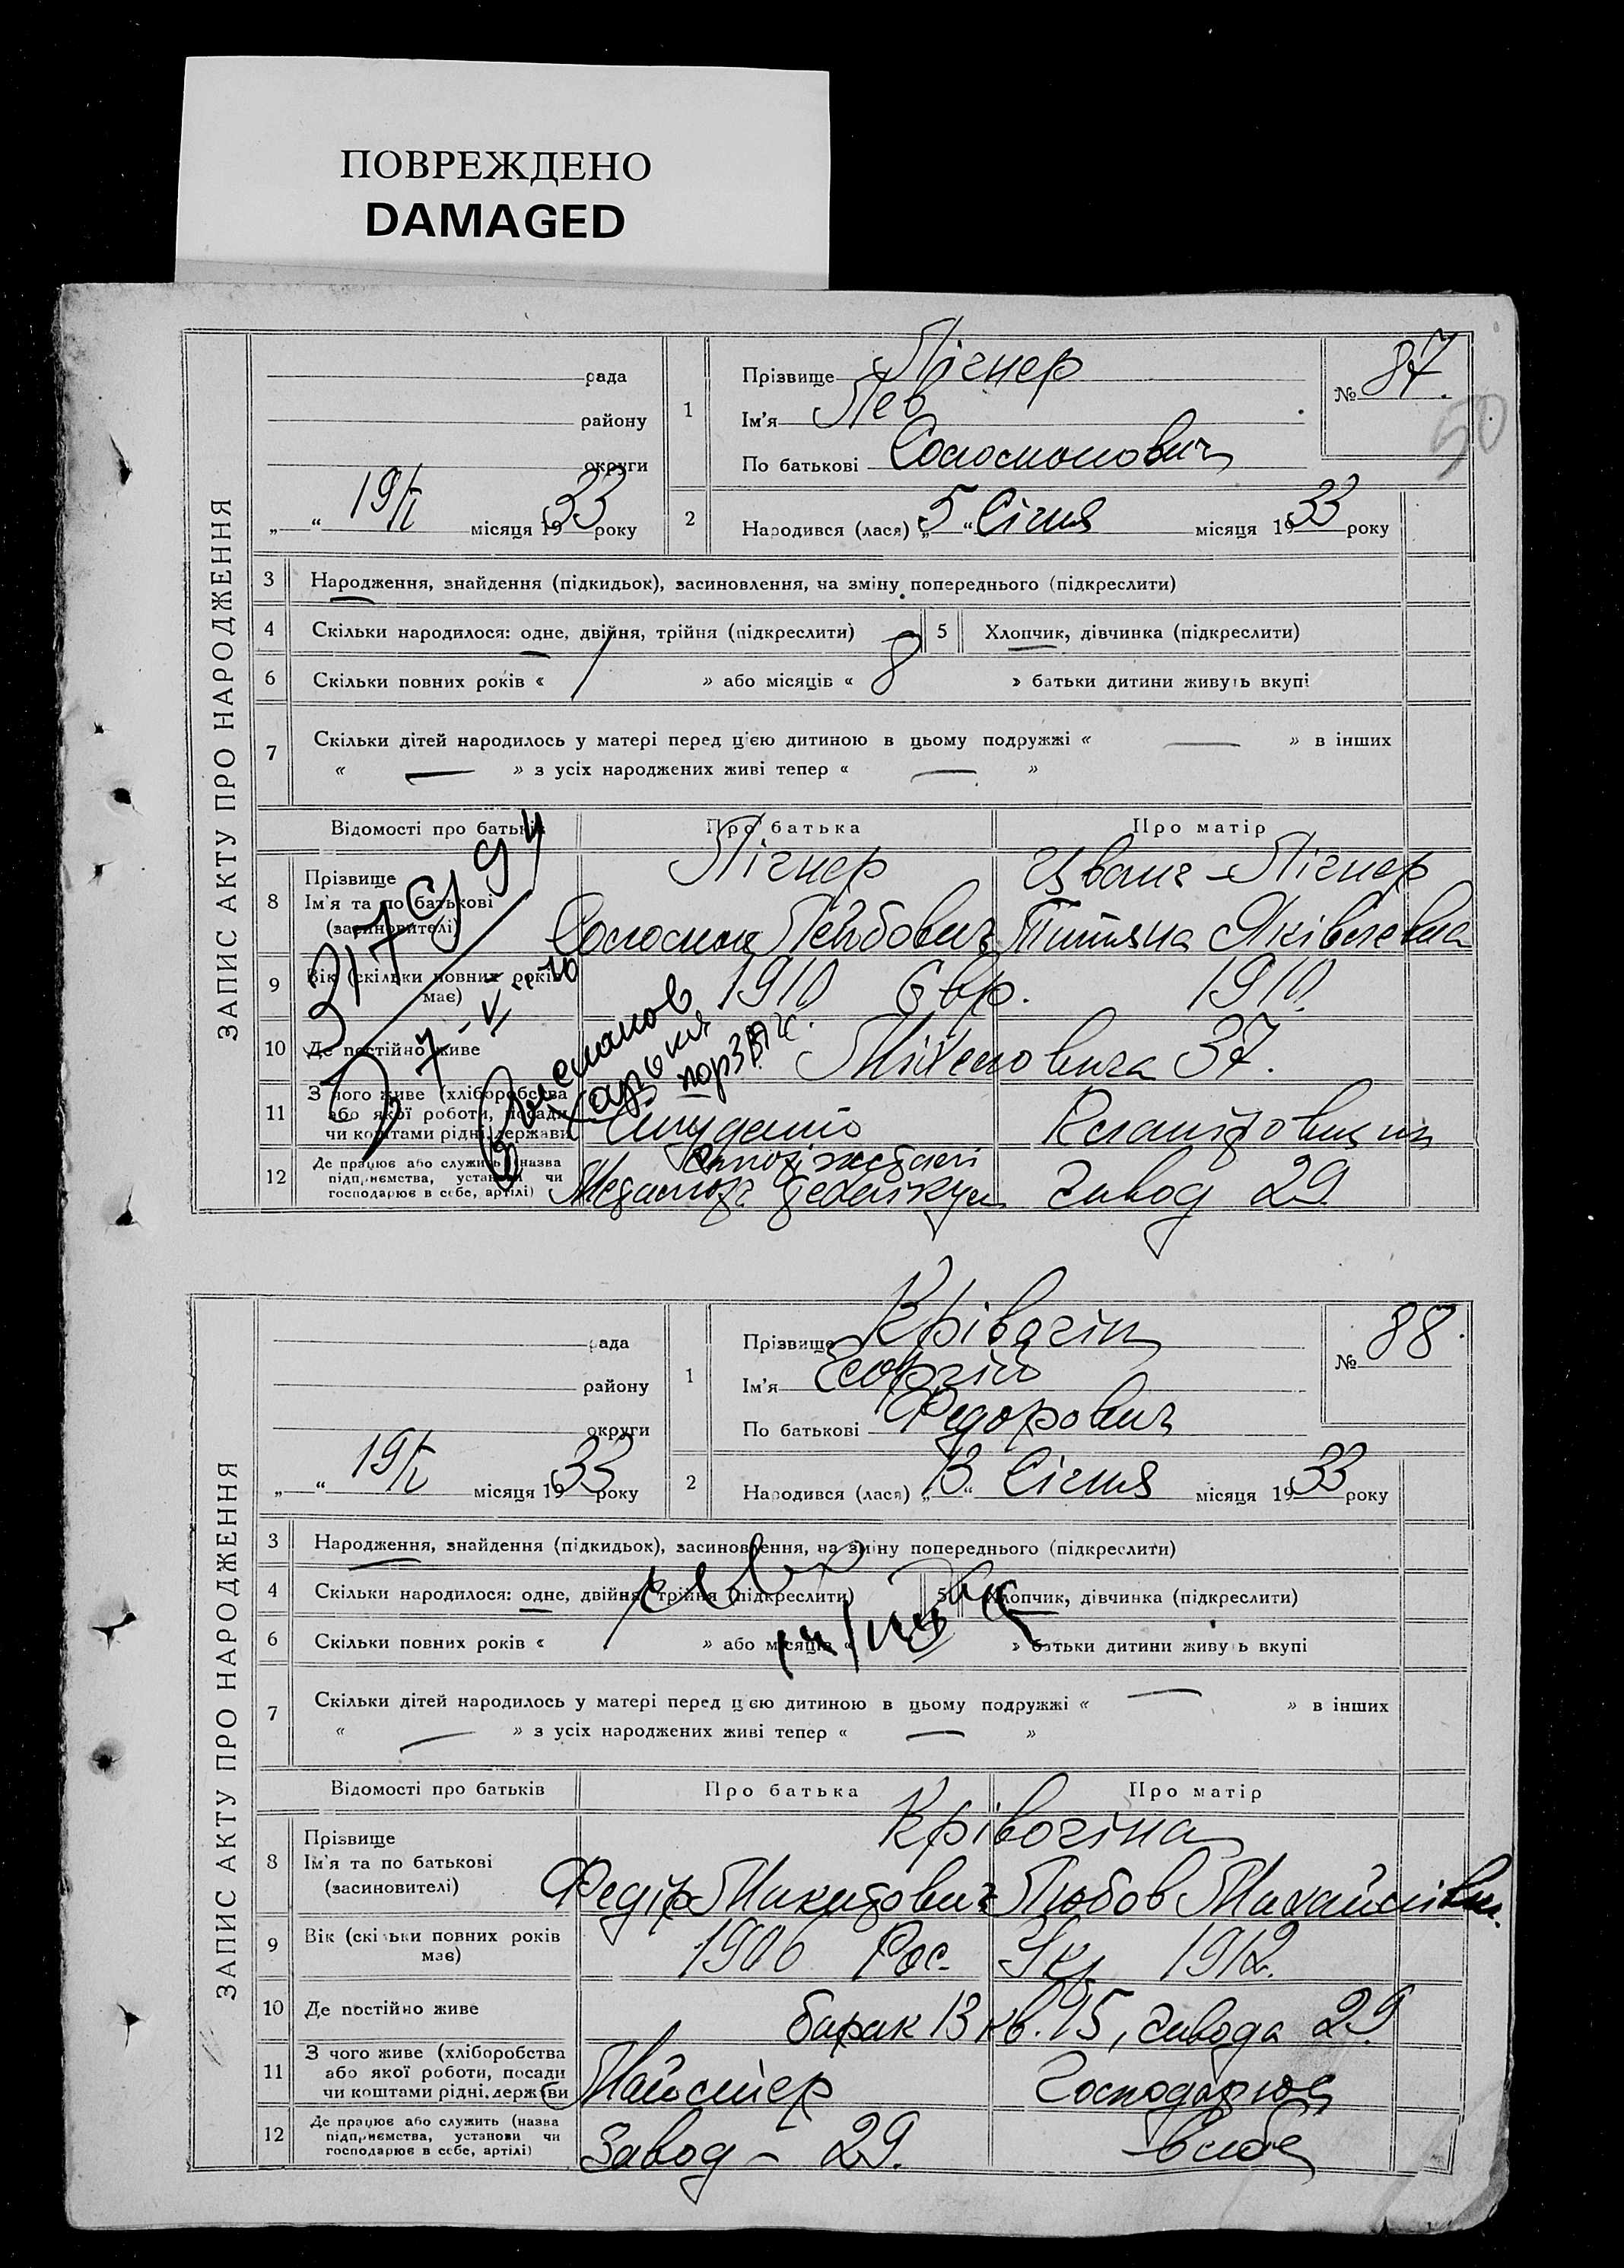 ПОВРЕЖДЕНО
DAMAGED
ЗАПИС АКТУ ПРО НАРОДЖЕННЯ
рада
району
округи
„ “ 19/I місяця 1933 року
1
Прізвище Лігнер
Ім'я Лев
По батькові Соломонович
№ 87.
50
2
Народився (лася) „5“ Січня місяця 1933 року
3 Народження, знайдення (підкидьок), засиновлення, на зміну попереднього (підкреслити)
4 Скільки народилося: одне, двійня, трійня (підкреслити)
5 Хлопчик, дівчинка (підкреслити)
6 Скільки повних років « / » або місяців « 8 » батьки дитини живуть вкупі
7 Скільки дітей народилось у матері перед цією дитиною в цьому подружжі « — » в інших
« — » з усіх народжених живі тепер « — »
Відомості про батьків Про батька Про матір
8 Прізвище
Ім'я та по батькові
(засиновителі)
Лігнер
Соломон Лейбович
Лігнер
Яківлевна
9 Вік (скільки повних років
має)
1910 Євр. 1910.
10 Де постійно живе
37.
11 З чого живе (хліборобства
або якої роботи, посади
чи коштами рідні, держави
Студент
12 Де працює або служить (назва
підприємства, установи чи
господарює в себе, артілі)
завод 29
ЗАПИС АКТУ ПРО НАРОДЖЕННЯ
рада
району
округи
„ “ 19/I місяця 1933 року
1
Прізвище Крівочін
Ім'я Георгій
По батькові Федорович
№ 88.
2
Народився (лася) „13“ Січня місяця 1933 року
3 Народження, знайдення (підкидьок), засиновлення, на зміну попереднього (підкреслити)
4 Скільки народилося: одне, двійня, трійня (підкреслити)
5 Хлопчик, дівчинка (підкреслити)
6 Скільки повних років « / » або місяців « » батьки дитини живуть вкупі
7 Скільки дітей народилось у матері перед цією дитиною в цьому подружжі « — » в інших
« — » з усіх народжених живі тепер « — »
Відомості про батьків Про батька Про матір
8 Прізвище
Ім'я та по батькові
(засиновителі)
Крівочіна
Федір Микитович Любов Михайлівна
9 Вік (скільки повних років
має)
1906 Рос. Укр 1912.
10 Де постійно живе
барак 13 кв. 15, завода 29
11 З чого живе (хліборобства
або якої роботи, посади
чи коштами рідні, держави
Майстер Господарює
12 Де працює або служить (назва
підприємства, установи чи
господарює в себе, артілі)
Завод – 29. в себе